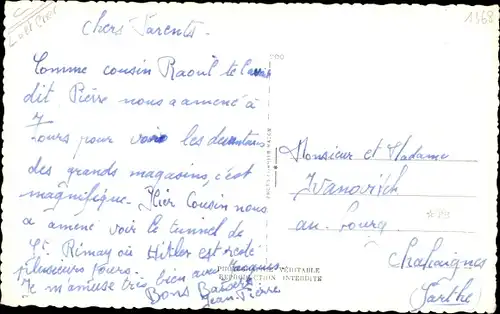 1968
Loir et Cher
Chers Parents.
Comme cousin Raoul te l'avait
dit Pierre nous a amené à
Tours pour voir les devantures
des grands magasins, c'est
magnifique. Hier Cousin nous
a amené voir le tunnel de
St. Rimay où Hitler est resté
plusieurs jours.
Je m'amuse très bien avec Jacques
Bons Baisers
Jean Pierre
Monsieur et Madame
Ivanovitch
au bourg
Chahaignes
(Sarthe)
VÉRITABLE
REPRODUCTION INTERDITE